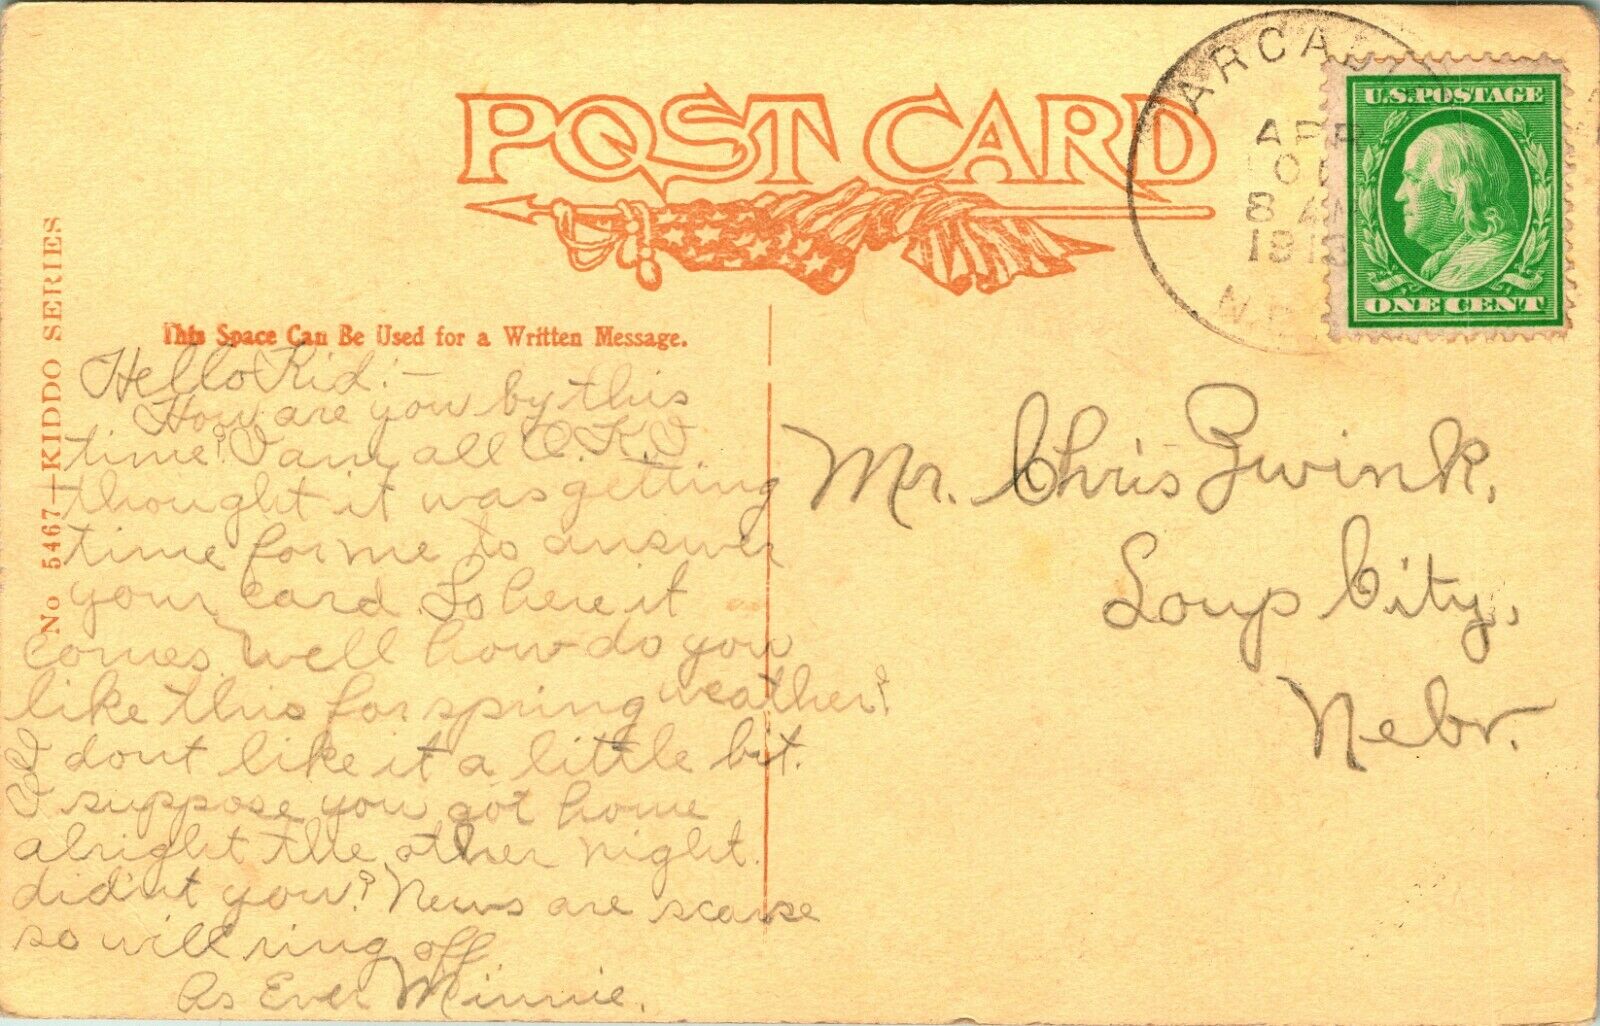 POST CARD
ARCADIA
APR
8 AM
N.E
U.S. POSTAGE
ONE CENT
No 5467—KIDDO SERIES
This Space Can Be Used for a Written Message.
Hello Kid:—
How are you by this
time? I am all O.K. I
thought it was getting
time for me to answer
your card. So here it
comes. Well how do you
like this for spring weather?
I dont like it a little bit.
I suppose you got home
alright the other night.
did'nt you? News are scarse
so will ring off
As Ever Minnie.
Mr. Chris Zwink,
Loup City,
Nebr.